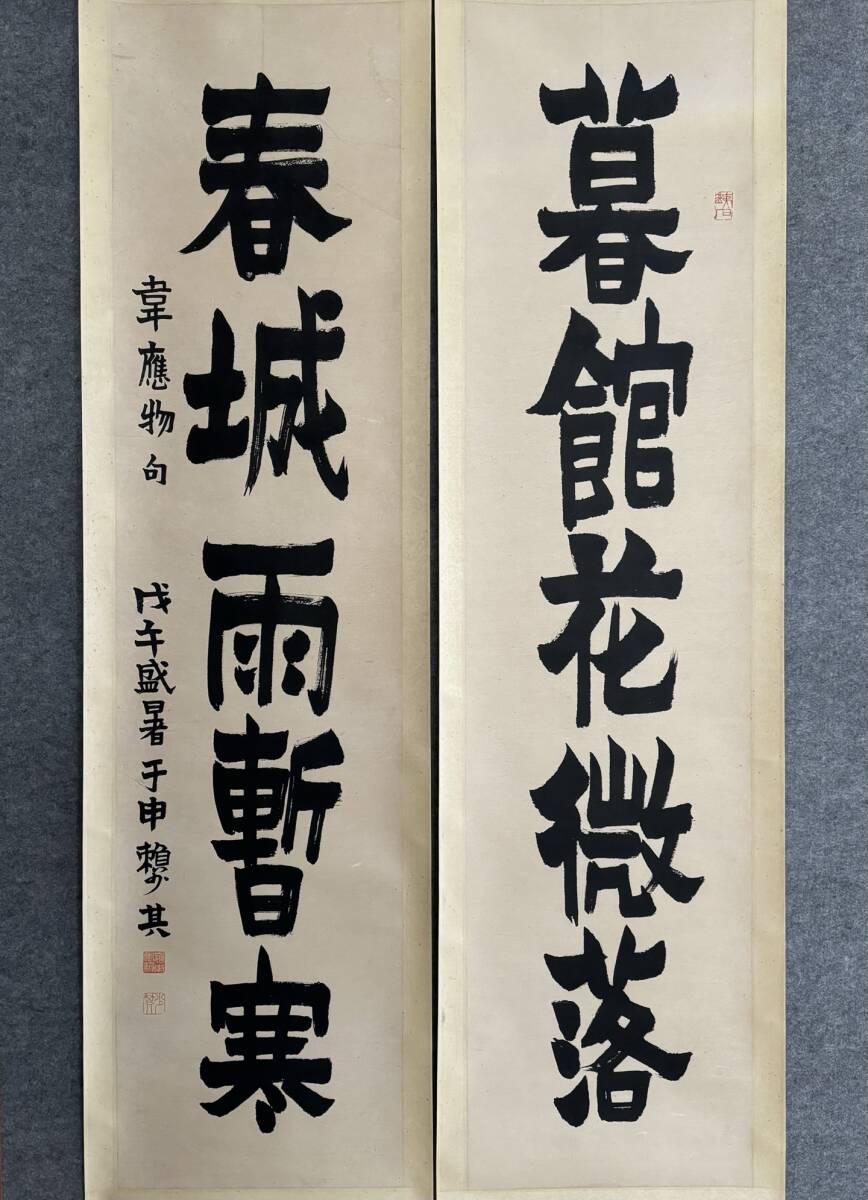 暮館花微落
春城雨暫寒
韋應物句
戊午盛暑于申賴少其